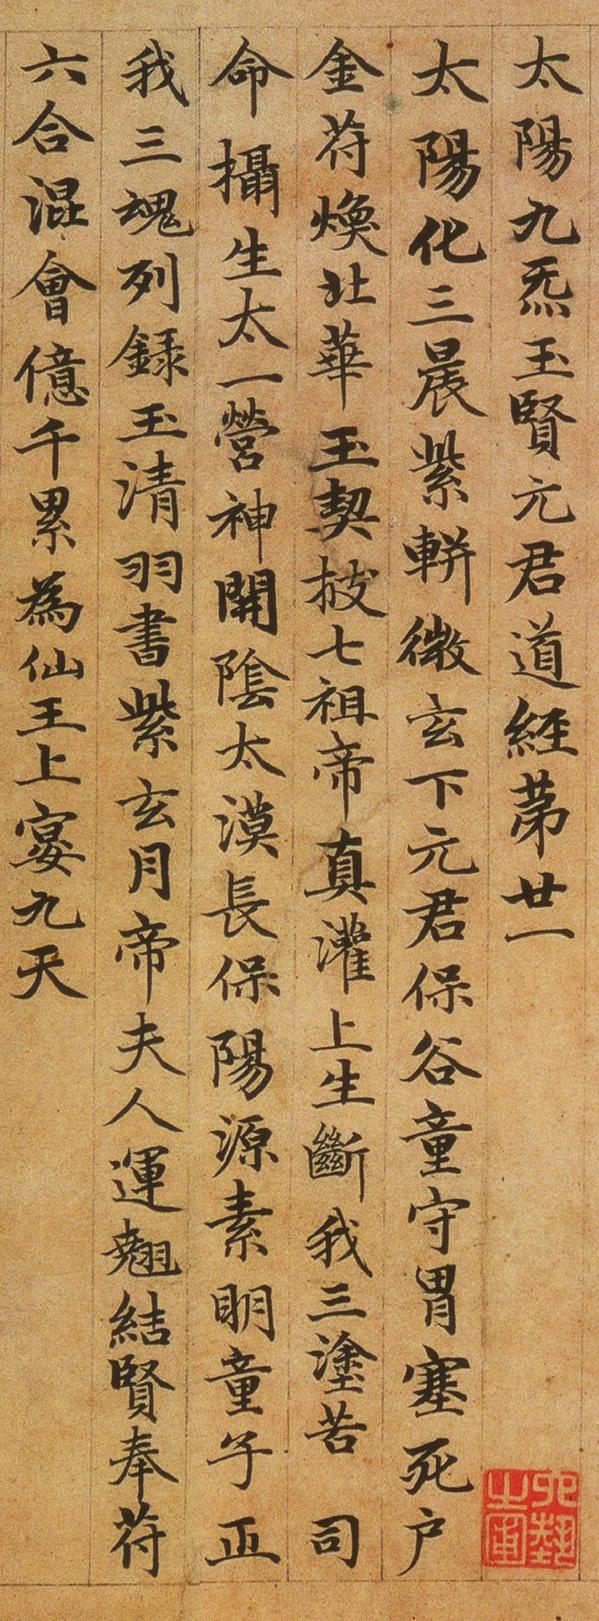 太陽九炁玉賢元君道經苐廿一
太陽化三晨紫軿微玄下元君保谷童守胃塞死户
金苻煥北華玉契披七祖帝真灌上生斷我三塗苦司
命攝生太一營神開陰太漠長保陽源素明童子正
我三魂列錄玉清羽書紫玄月帝夫人運翹結賢奉苻
六合混會億千累為仙王上宴九天